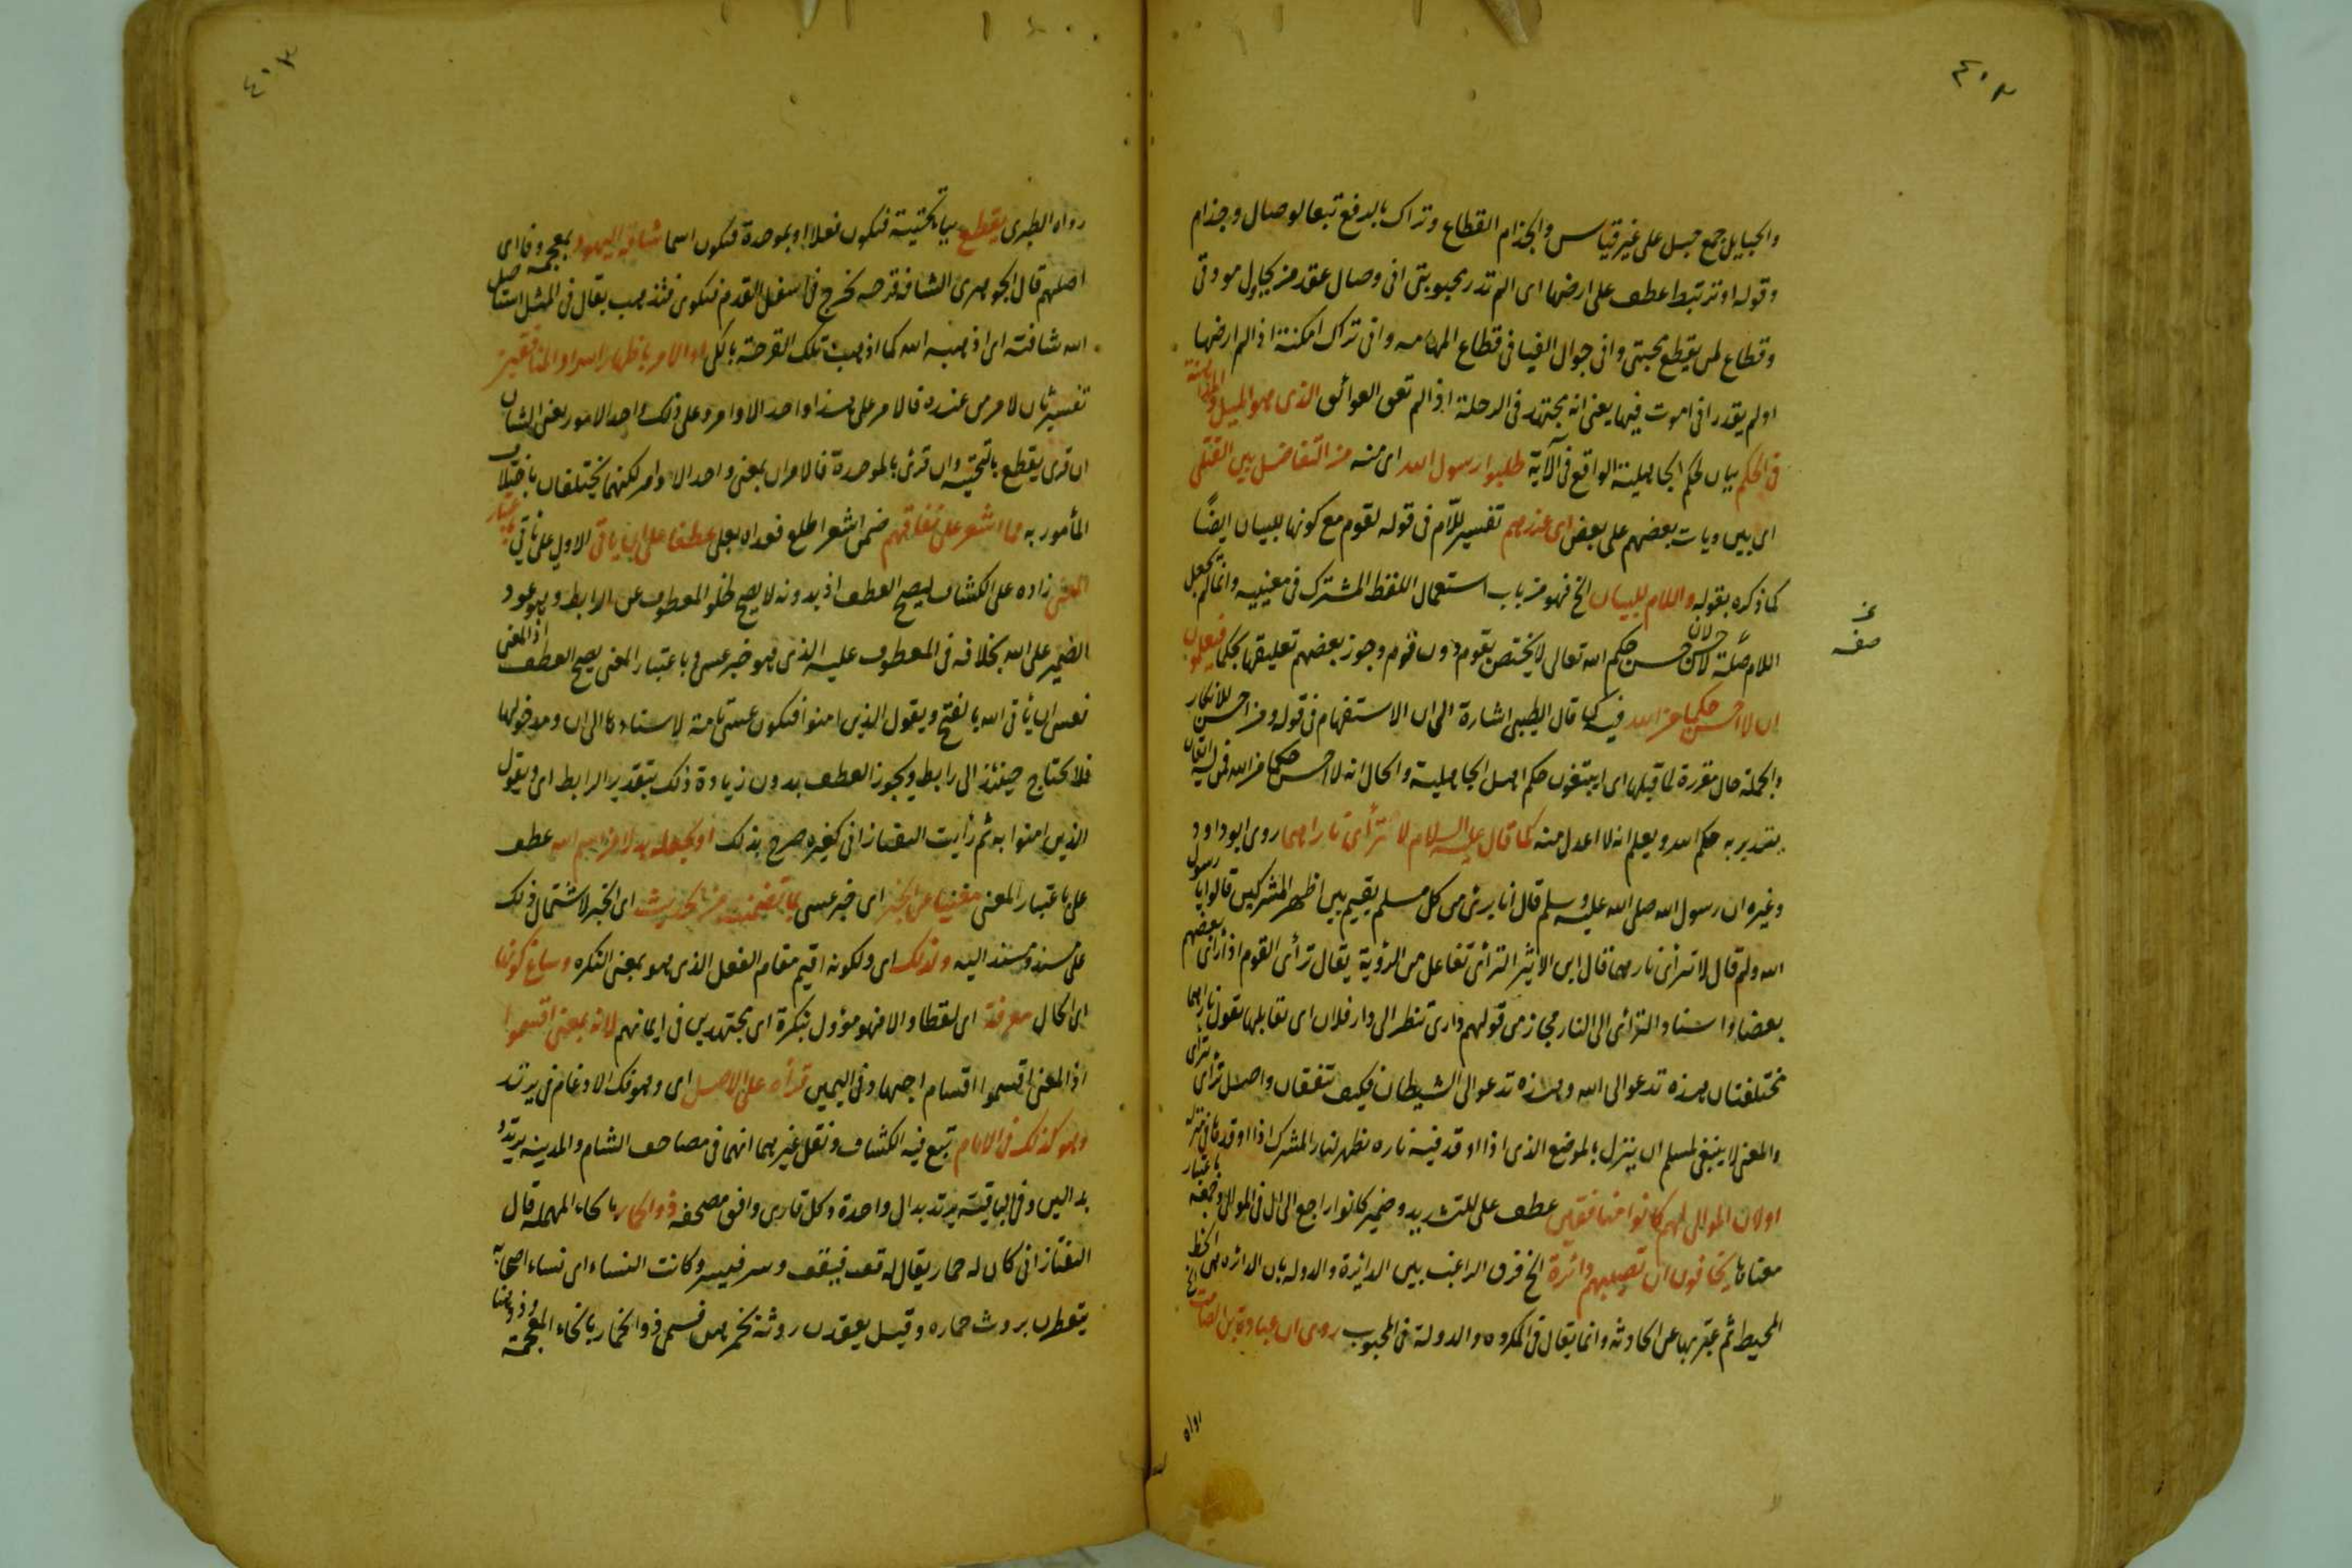 ٤٠٢
والحبايل جمع حبل على غير قياس والجذام القطاع وتراك بالرفع تبعا لوصال وجذام
وقوله او ترتبط عطف على ارضها اى الم تدر محبوبتى انى وصال عقد من يحاول مودتى
وقطاع لمن يقطع محبتى وانى جوال الفيا فى قطاع المهامه وانى تراك امكنة اذا لم ارضها
او لم يقدر انى اموت فيها يعنى انه يجتهد فى الرحلة اذا لم تعق العوائق الذى هو الميل والمداهنة
فى الحكم بيان لحكم الجاهلية الواقع فى الآية طلبوا رسول الله اى منه من التفاضل بين القتلى
اى بين ديات بعضهم على بعض اى عندهم تفسير للام فى قوله لقوم مع كونها للبيان ايضًا
كما ذكره بقوله واللام للبيان الخ فهو من باب استعمال اللفظ المشترك فى معنييه وانما لم تجعل
اللام صلة لاحسن لان حسن حكم الله تعالى لا يختص بقوم دون قوم وجوز بعضهم تعليقها بحكما فيعلمون
ان لا احسن حكما من الله فيه كما قال الطيبى اشارة الى ان الاستفهام فى قوله ومن احسن للانكار
والجملة حال مقررة لما قبلها اى ايبتغون حكم اهل الجاهلية والحال انه لا احسن حكما من الله لمن له ايقان
بتدبر به حكم الله ويعلم انه لا اعدل منه كما قال عليه السلام لا تترأى ناراهما روى ابو داود
وغيره ان رسول الله صلى الله عليه وسلم قال انا برئ من كل مسلم يقيم بين اظهر المشركين قالوا يا رسول
الله ولم قال لا تترأى نارهما قال ابن الاثير الترأى تفاعل من الرؤية يقال ترأى القوم اذا رأى بعضهم
بعضا واسناد الترأى الى النار مجاز من قولهم دارى تنظر الى دار فلان اى تقابلها تقول ناراهما
مختلفتان هذه تدعو الى الله وهذه تدعو الى الشيطان فكيف تتفقان واصل ترأى تترأى
والمعنى لا ينبغى لمسلم ان ينزل بالموضع الذى اذا اوقد فيه ناره تظهر لنار المشرك اذا اوقدها فى منزله
اولان الموالى لهم كانوا منافقين عطف على للتشديد وضمير كانوا راجع الى ال فى الموالى وجمعه باعتبار
معناها يخافون ان تصيبهم دائرة الخ فرق الراغب بين الدائرة والدولة بان الدائرة هى الخط
المحيط ثم عبر بها عن الحادثة وانما يقال فى المكروه والدولة فى المحبوب روى ان عبادة بن الصامت الخ
رواه
صفه
٤٠٣
رواه الطبرى يقطع بيا تحتية فتكون فعلا او بموحدة فتكون اسما شافة اليهود بمعجمة وفا اى
اصلهم قال الجوهرى الشافة قرحة تخرج فى اسفل القدم فتكوى فتذهب يقال فى المثل استاصل
الله شافته اى اذهبه الله كما اذهبت تلك القرحة بالكى او الامر باظهار اسرار المنافقين
تفسير ثان لامر من عنده فالامر على هذا واحد الاوامر وعلى ذلك واحد الامور بمعنى الشان
ان قرئ يقطع بالتحتية وان قرئ بالموحدة فالامران بمعنى واحد الاوامر لكنهما يختلفان باختلاف
المأمور به مما اشعر على نفاقهم ضمن اشعر اطلع فعداه بعلى عطفا على ان يأتى الاول على ياتى باعتبار
المعنى زاده على الكشاف ليصح العطف اذ بدونه لا يصح لخلو المعطوف عن الرابط وهو عود
الضمير على الله بخلافه فى المعطوف عليه الذى هو خبر عسى وباعتبار المعنى يصح العطف اذ المعنى
فعسى ان يأتى الله بالفتح ويقول الذين امنوا فتكون عسى تامة لاسنادها الى ان ومدخولها
فلا تحتاج حينئذ الى رابط ويجوز العطف بدون زيادة ذلك بتقدير الرابط اى ويقول
الذين امنوا به ثم رأيت التفتازانى كغيره صرح بذلك او يجعله بدلا من اسم الله عطف
على باعتبار المعنى مغنيا عن الخبر اى خبر عسى بما تضمنه من الحديث اى الخبر لاشتمال ذلك
على مسند ومسند اليه ولذلك اى ولكونه اقيم مقام الفعل الذى هو بمعنى النكرة وساغ كونها
اى الحال معرفة اى لفظا والا فهو مؤول بنكرة اى مجتهدين فى ايمانهم لانه بمعنى اقسموا
اذ المعنى اقسموا اقسام اجهاد فى اليمين قرأه على الاصل اى وهو فك الادغام فى يرتد
وهو كذلك فى الامام تبع فيه الكشاف ونقل غيرهما انهما فى مصاحف الشام والمدينة يرتدد
بدالين وفى الباقية يرتد بدال واحدة وكل قارى وافق مصحفه ذو الحمار بالحاء المهملة قال
التفتازانى كان له حمار يقال له قف فيقف وسر فيسير وكانت النساء اى نساء اصحابه
يتعطرن بروث حماره وقيل يعقدن روثه بخمرهن فسمى ذو الخمار بالخاء المعجمة